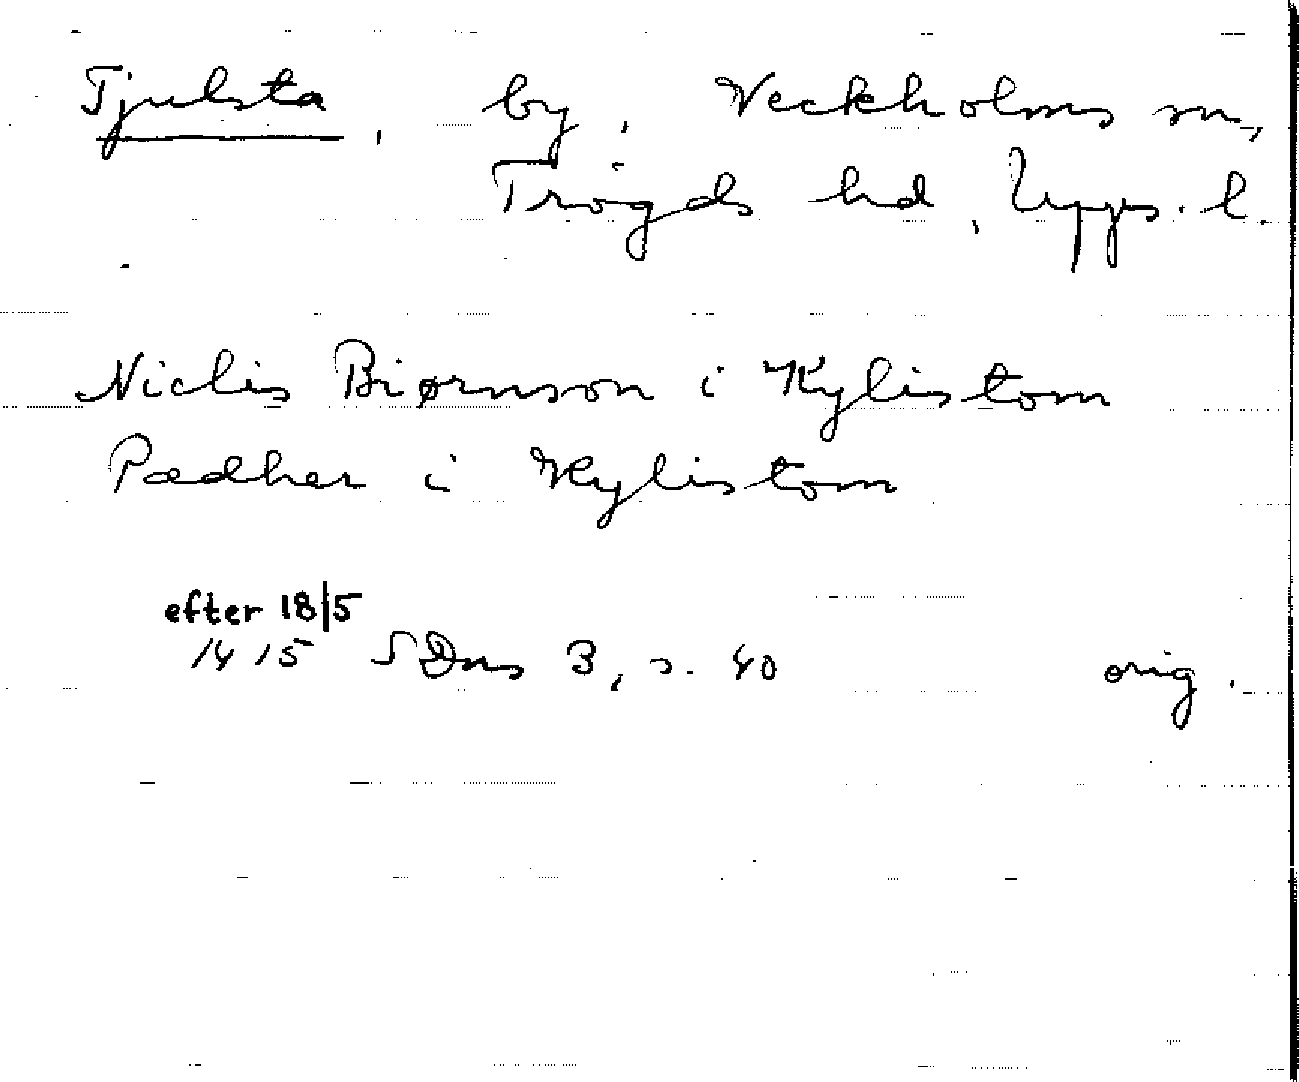 Tjulsta, by, Veckholms sn,
Trögds hd, Upps. l.
Niclis Biørnson i Kylistom
Pædher i Kylistom
efter 18/5
1415 SDns 3, s. 40 orig.